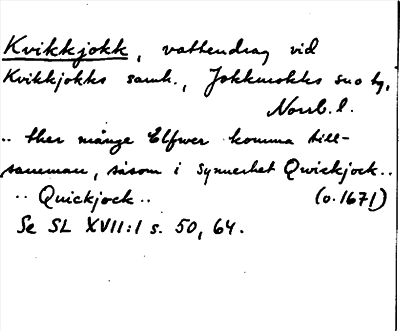 Kvikkjokk, vattendrag vid
Kvikkjokks samh., Jokkmokks sno tg,
Norrb. l.
.. ther månge Elfwer komma till-
samman, såsom i synnerhet Qwickjock..
.. Quickjock.. (o.1671)
Se SL XVII:1 s. 50, 64.